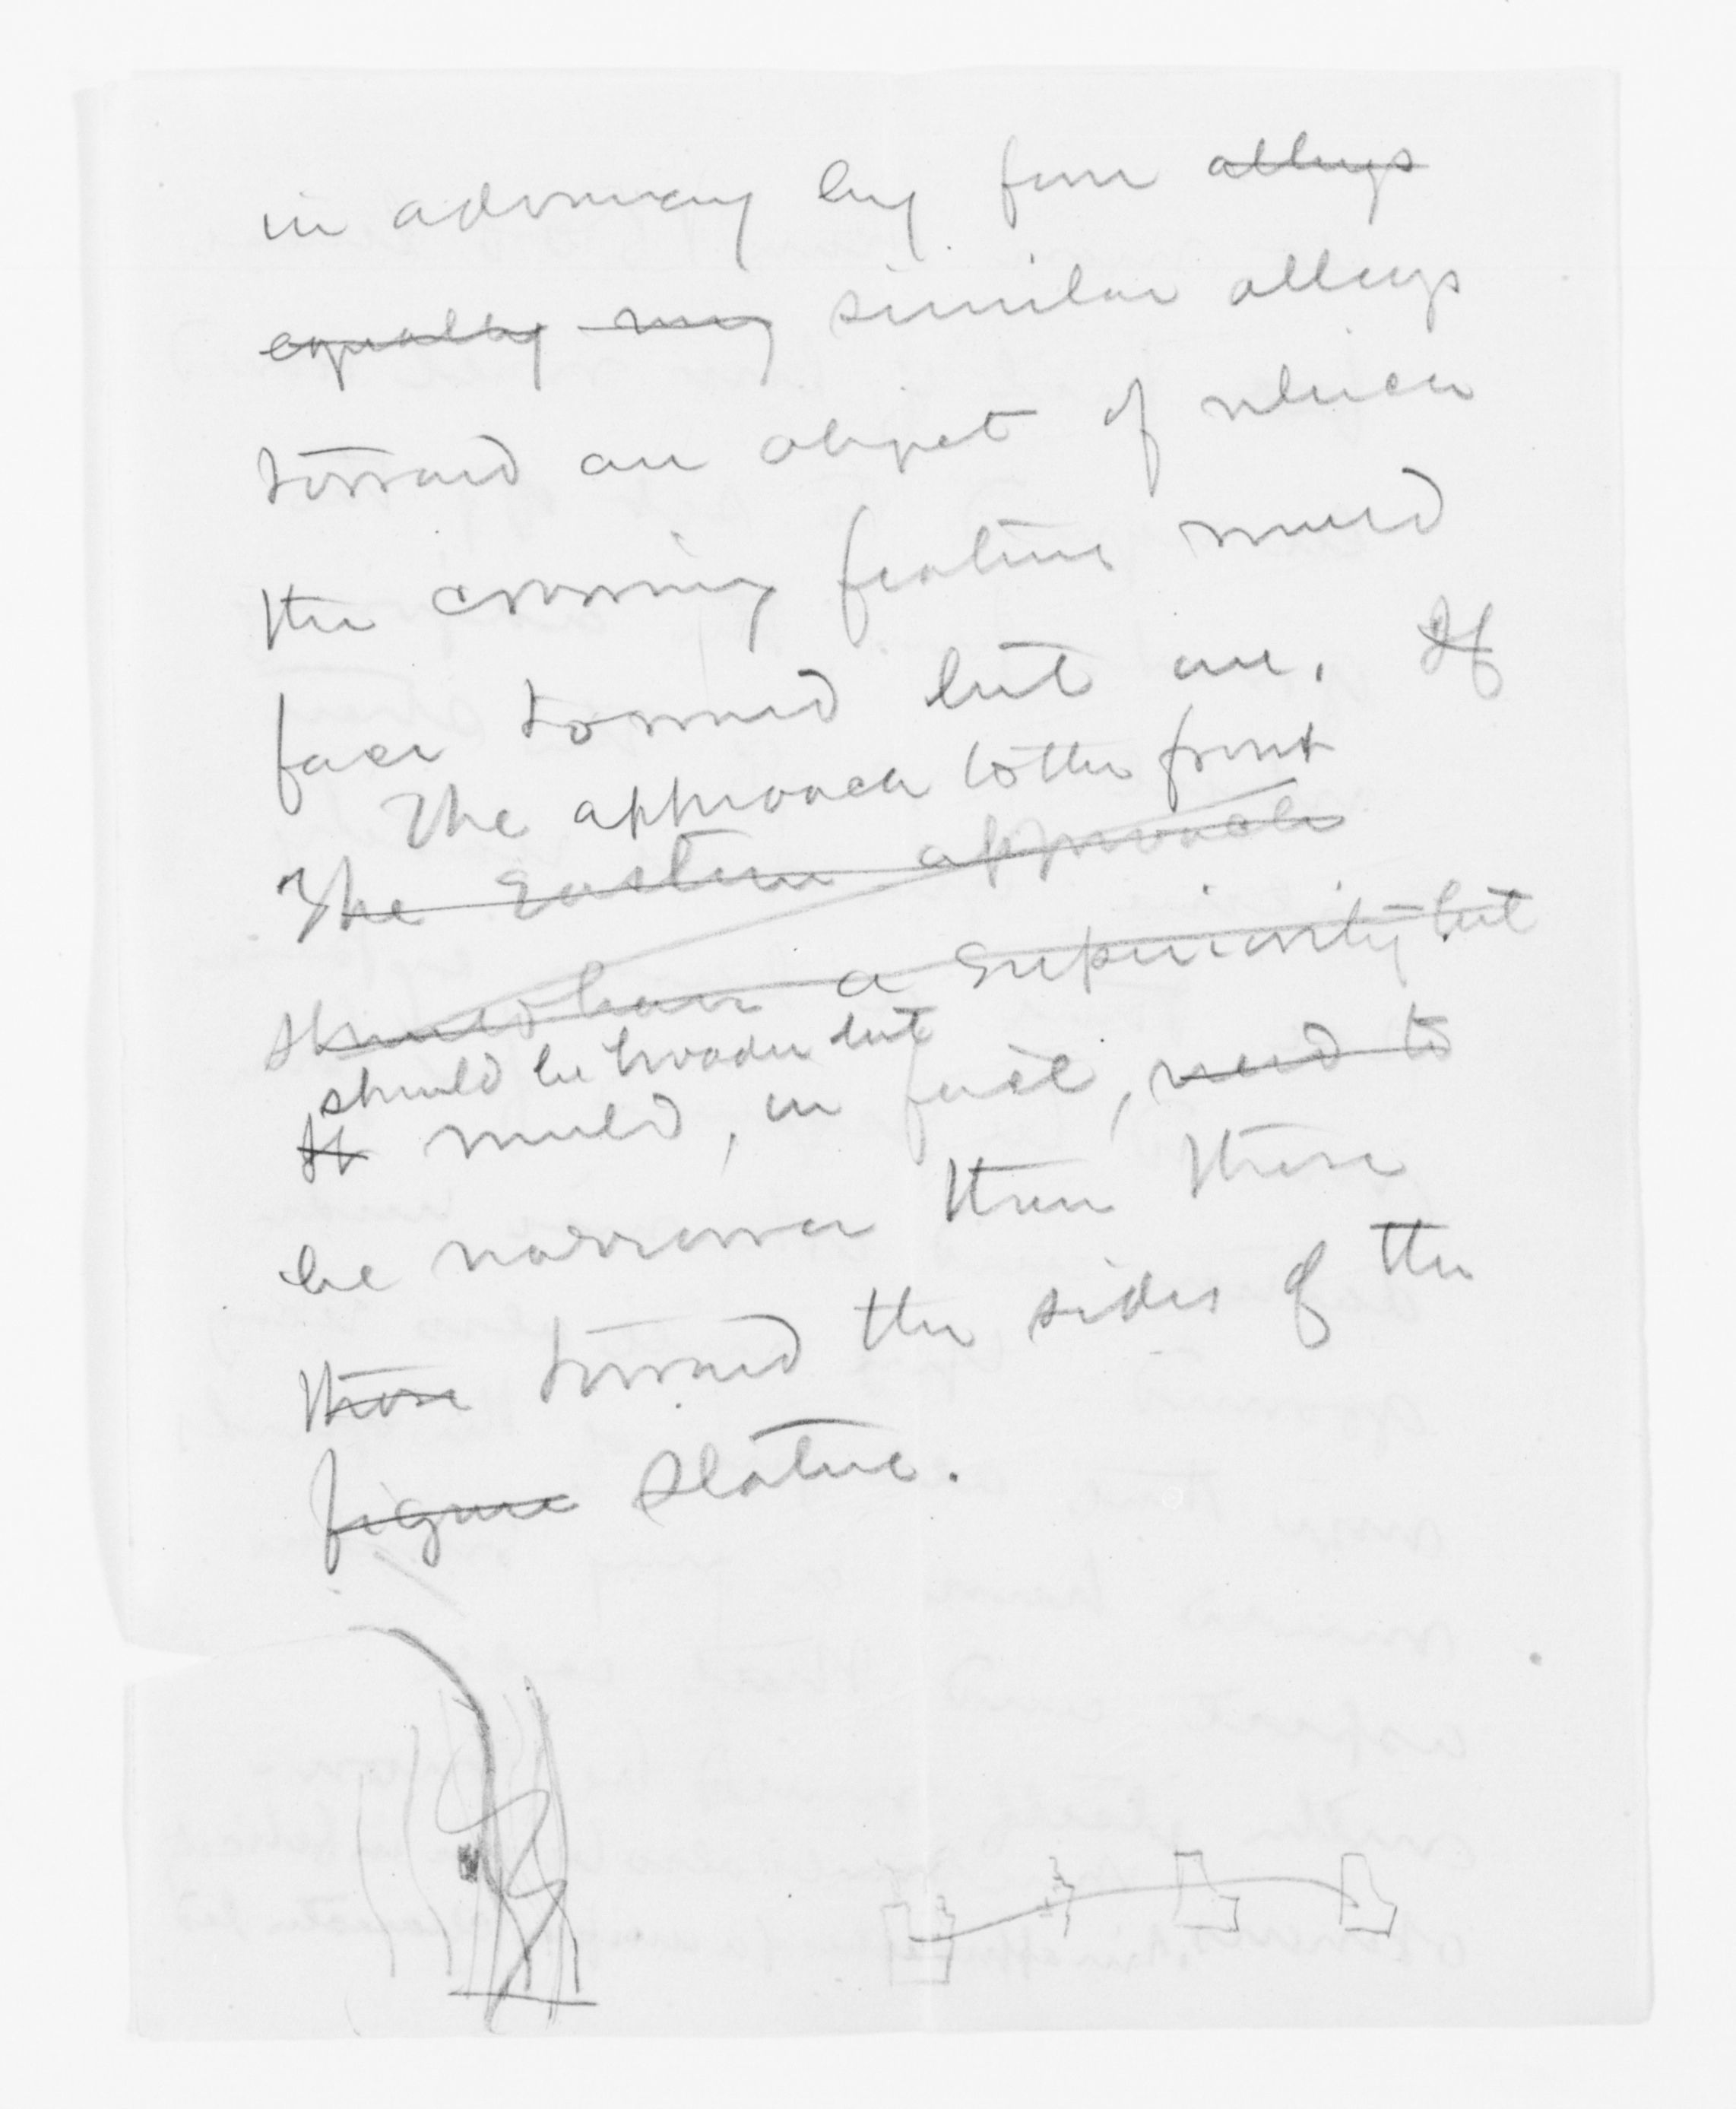 in a doorway by four alleys
equally may similar alleys
toward an object of which
the crowning feature would
face toward but one. If
The approach to the front
The Eastern approach
should have a superiority but
should be broader but
It would, in fact, need to
be narrower than those
those toward the sides of the
figure statue.